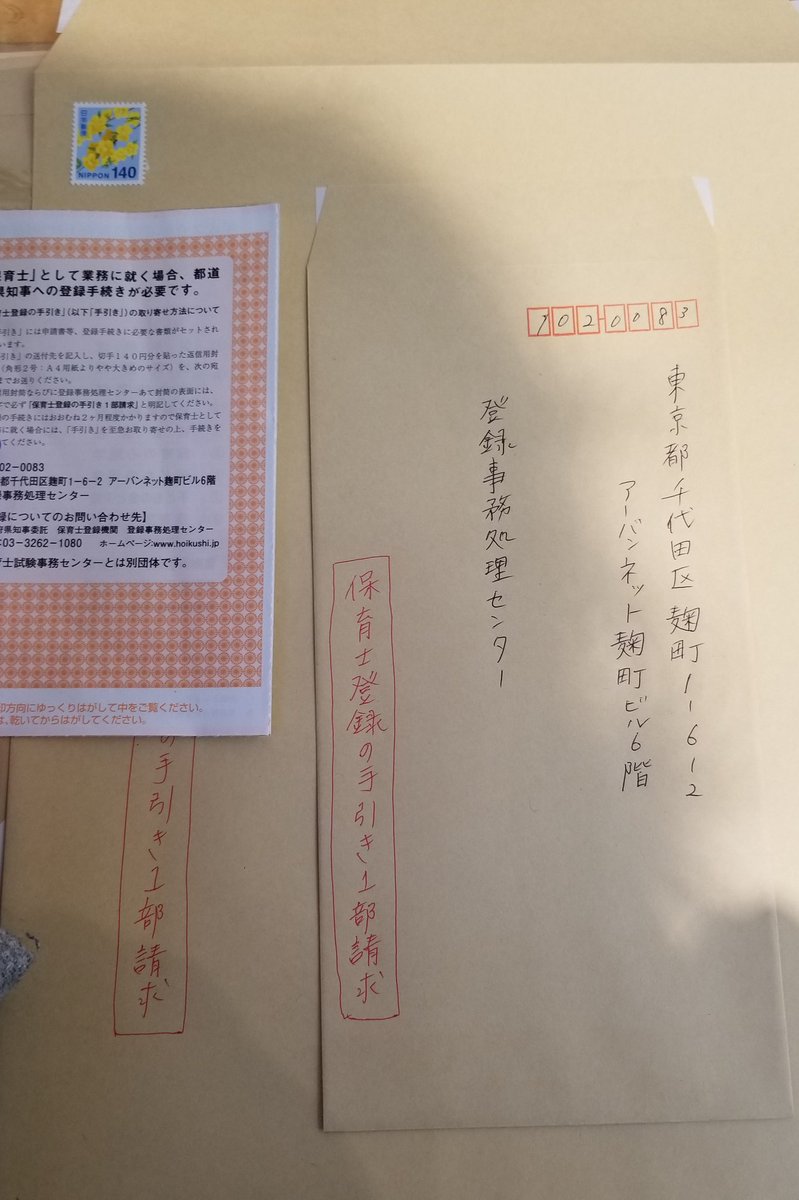 日本郵便
NIPPON 140
育士」として業務に就く場合、都道
県知事への登録手続きが必要です。
育士登録の手引き」(以下「手引き」)の取り寄せ方法について
手引き」には申請書等、登録手続きに必要な書類がセットされ
います。
引き」の送付先を記入し、切手140円分を貼った返信用封
(角形2号:A4用紙よりやや大きめのサイズ)を、次の宛
までお送りください。
用封筒ならびに登録事務処理センターあて封筒の表面には、
で必ず「保育士登録の手引き1部請求」と明記してください。
の手続きにはおおむね2ヶ月程度かかりますので保育士として
に就く場合には、「手引き」を至急お取り寄せの上、手続きを
てください。
02-0083
都千代田区麹町1-6-2 アーバンネット麹町ビル6階
事務処理センター
録についてのお問い合わせ先】
府県知事委託 保育士登録機関 登録事務処理センター
:03-3262-1080 ホームページ:www.hoikushi.jp
育士試験事務センターとは別団体です。
印方向にゆっくりはがして中をご覧ください。
は、乾いてからはがしてください。
102-0083
東京都千代田区麹町1-6-2
アーバンネット麹町ビル6階
登録事務処理センター
保育士登録の手引き1部請求
の手引き1部請求